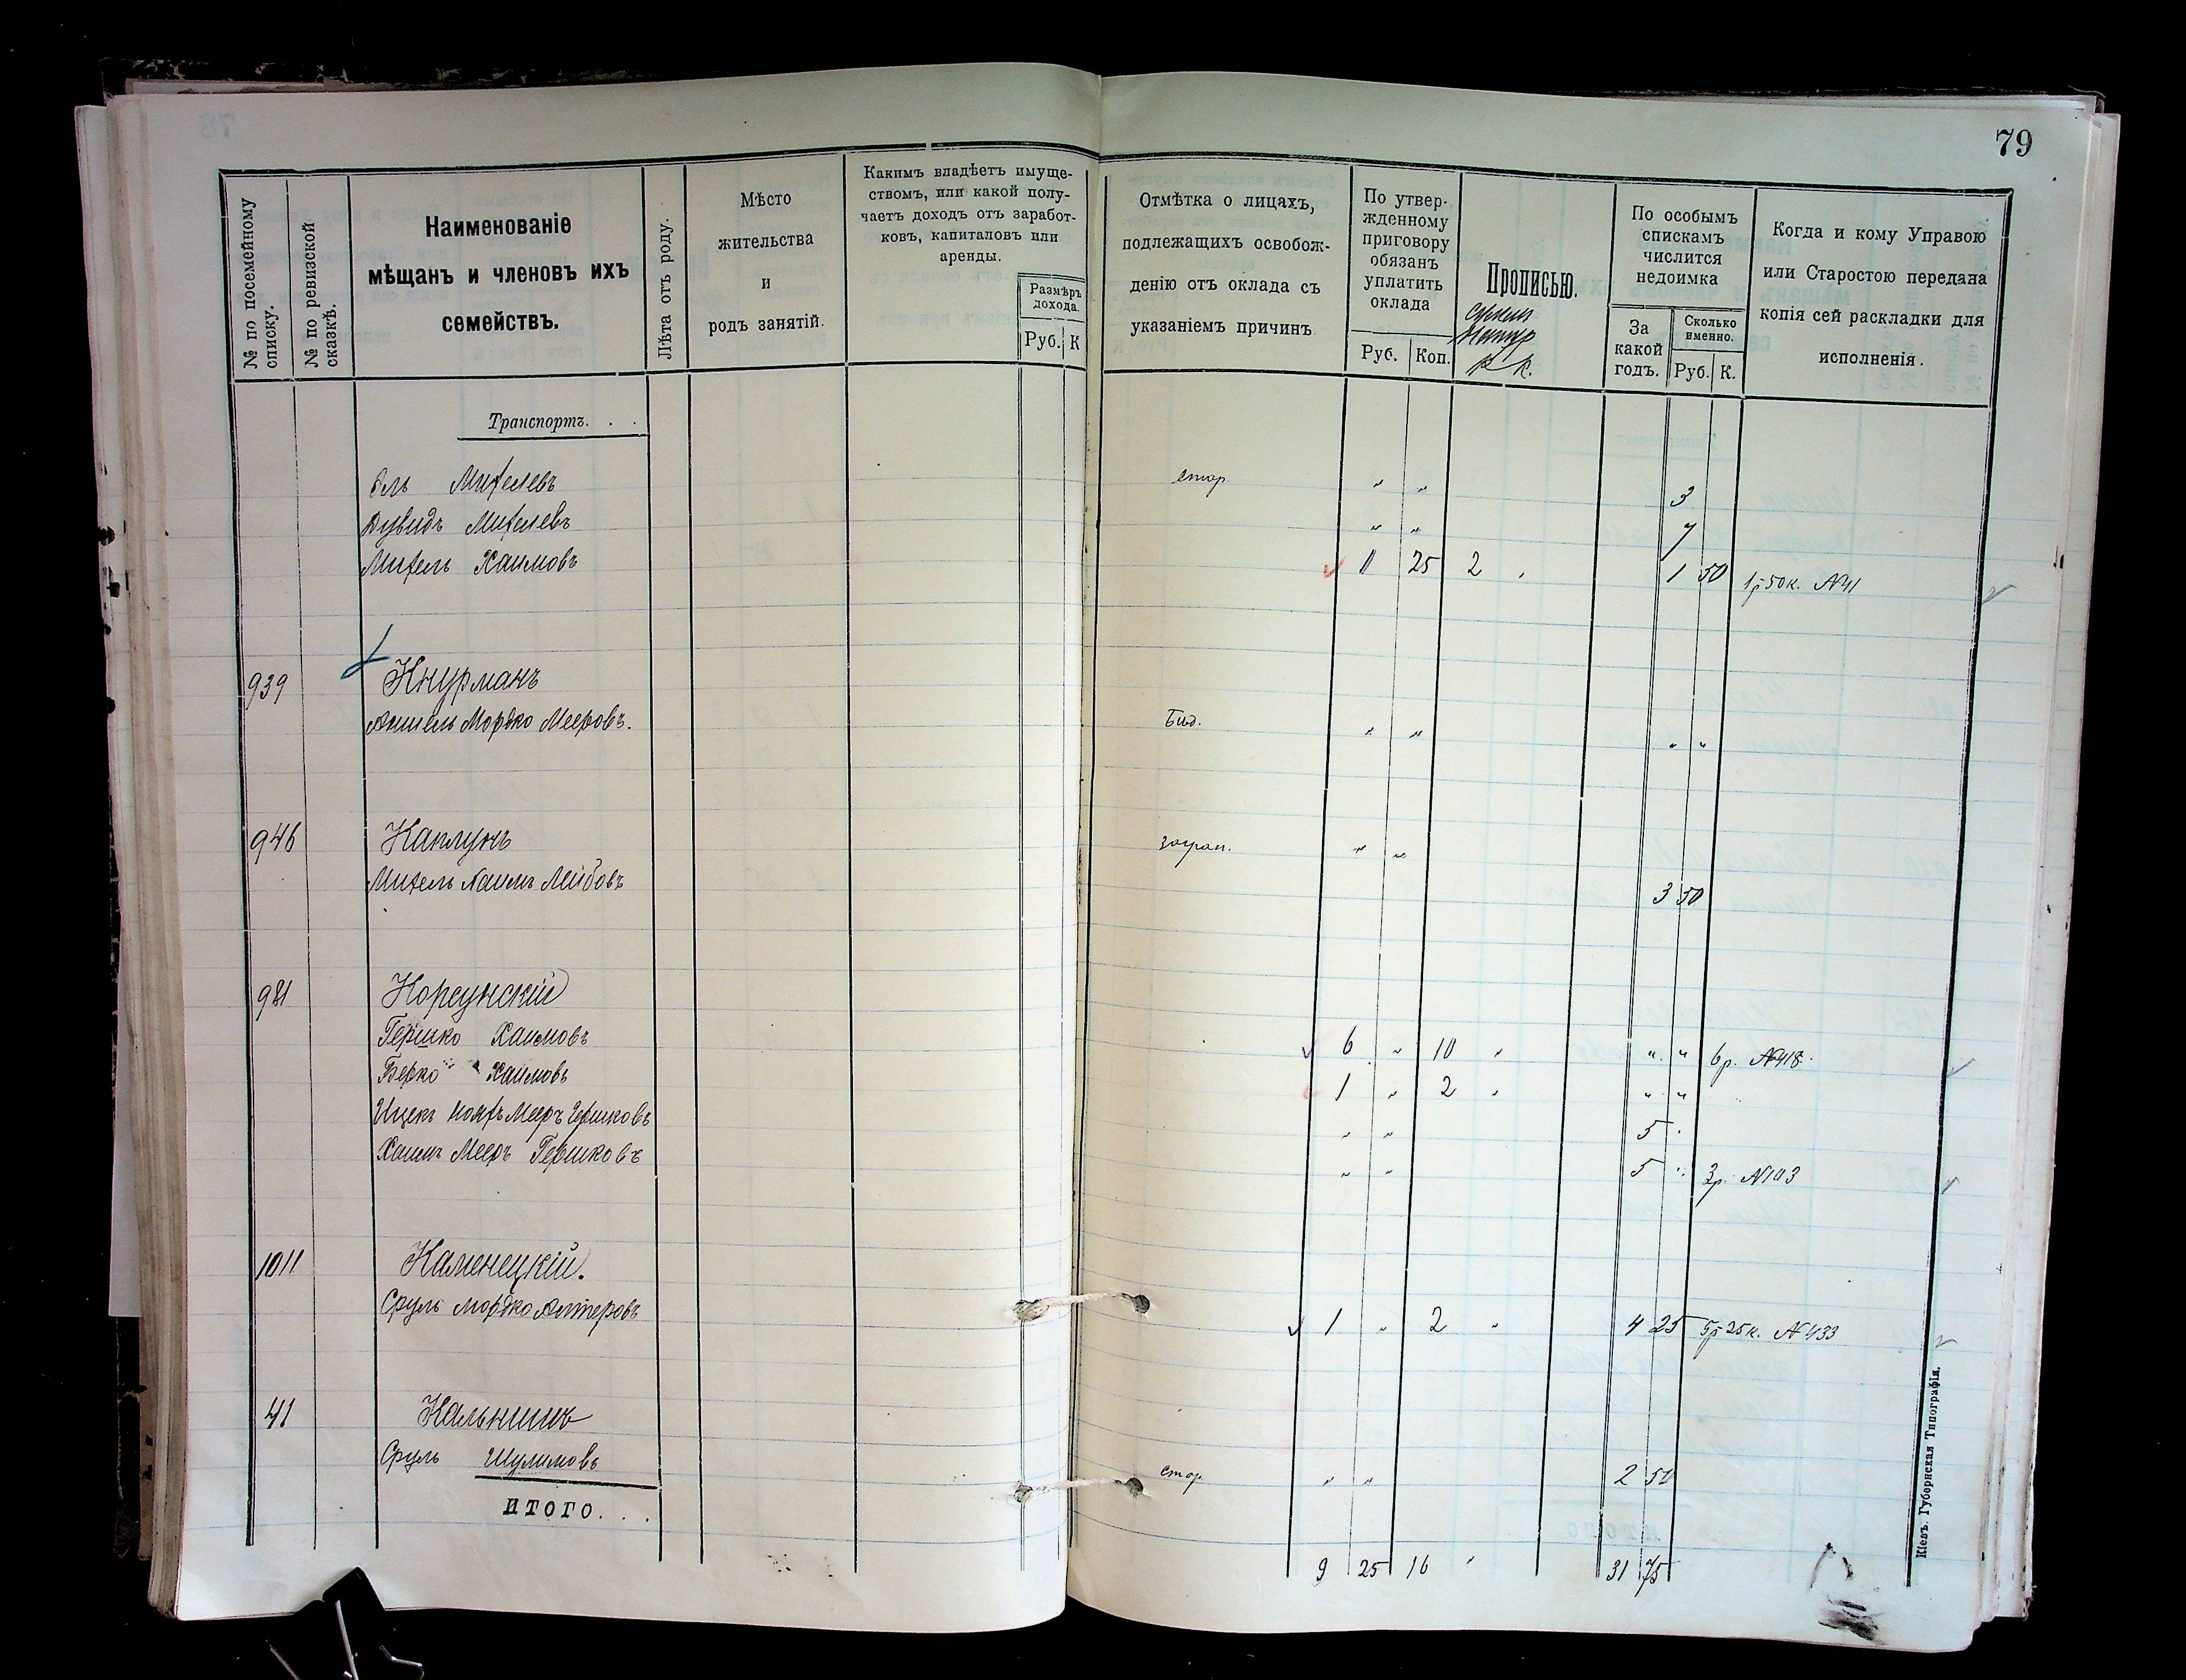 79
№ по посемейному списку.
№ по ревизской сказкѣ.
Наименованіе
мѣщанъ и членовъ ихъ
семействъ.
Лѣта отъ роду.
Мѣсто
жительства
и
родъ занятій.
Какимъ владѣетъ имуще-
ствомъ, или какой полу-
чаетъ доходъ отъ заработ-
ковъ, капиталовъ или
аренды.
Размѣръ
дохода.
Руб. К
Отмѣтка о лицахъ,
подлежащихъ освобож-
денію отъ оклада съ
указаніемъ причинъ
По утвер-
жденному
приговору
обязанъ
уплатить
оклада
Руб. Коп.
Прописью.
р. К.
По особымъ
спискамъ
числится
недоимка
За
какой
годъ.
Сколько
именно.
Руб. К.
Когда и кому Управою
или Старостою передана
копія сей раскладки для
исполненія.
Транспортъ. . .
Эль Михелевъ стар. " " 3
Дувидъ Михелевъ " " 7
Михель Хаимовъ 1 25 2 " 1 50 1р 50к. №41
939 Кнурманъ
Аншель Мордко Мееровъ. Бѣд. " " " "
946 Каплунъ загран. " "
Михель Хаимъ Лейбовъ 3 50
981 Корсунскій
Гершко Хаимовъ 6 " 10 " " " 6р. №418.
Берко Хаимовъ 1 " 2 " " "
Ицекъ Мееръ Гершковъ " " 5 "
Хаимъ Мееръ Гершковъ " " 5 " 3р. №103
1011 Каменецкій.
Сруль Мордко Алтеровъ 1 " 2 " 4 25 5р 25к. №433
41
Сруль Шулимовъ стар. " " 2 50
ИТОГО. . .
9 25 16 " 31 75
Кіевъ. Губернская Типографія.